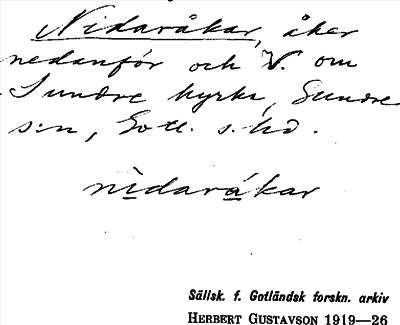 Nidaråkar, åker
nedanför och V. om
Sundre kyrka, Sundre
s:n, Gotl. s. hd.
nìdaråkar
Sällsk. f. Gotländsk forskn. arkiv
HERBERT GUSTAVSON 1919—26